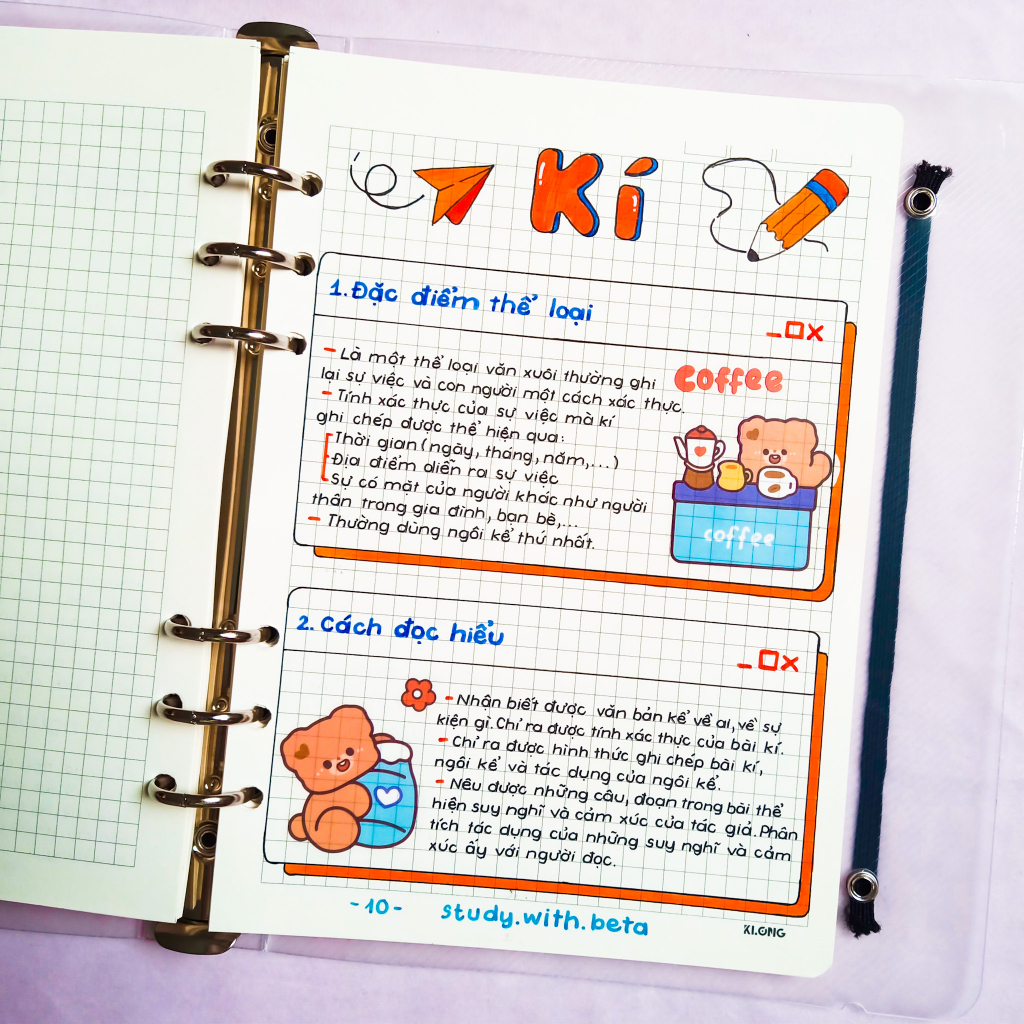 Kí
1. Đặc điểm thể loại
- Là một thể loại văn xuôi thường ghi
lại sự việc và con người một cách xác thực.
- Tính xác thực của sự việc mà kí
ghi chép được thể hiện qua:
Thời gian (ngày, tháng, năm,...)
Địa điểm diễn ra sự việc
Sự có mặt của người khác như người
thân trong gia đình, bạn bè,...
- Thường dùng ngôi kể thứ nhất.
coffee
coffee
2. Cách đọc hiểu
- Nhận biết được văn bản kể về ai, về sự
kiện gì. Chỉ ra được tính xác thực của bài kí.
- Chỉ ra được hình thức ghi chép bài kí,
ngôi kể và tác dụng của ngôi kể.
- Nêu được những câu, đoạn trong bài thể
hiện suy nghĩ và cảm xúc của tác giả. Phân
tích tác dụng của những suy nghĩ và cảm
xúc ấy với người đọc.
- 10 - study.with.beta
KLONG